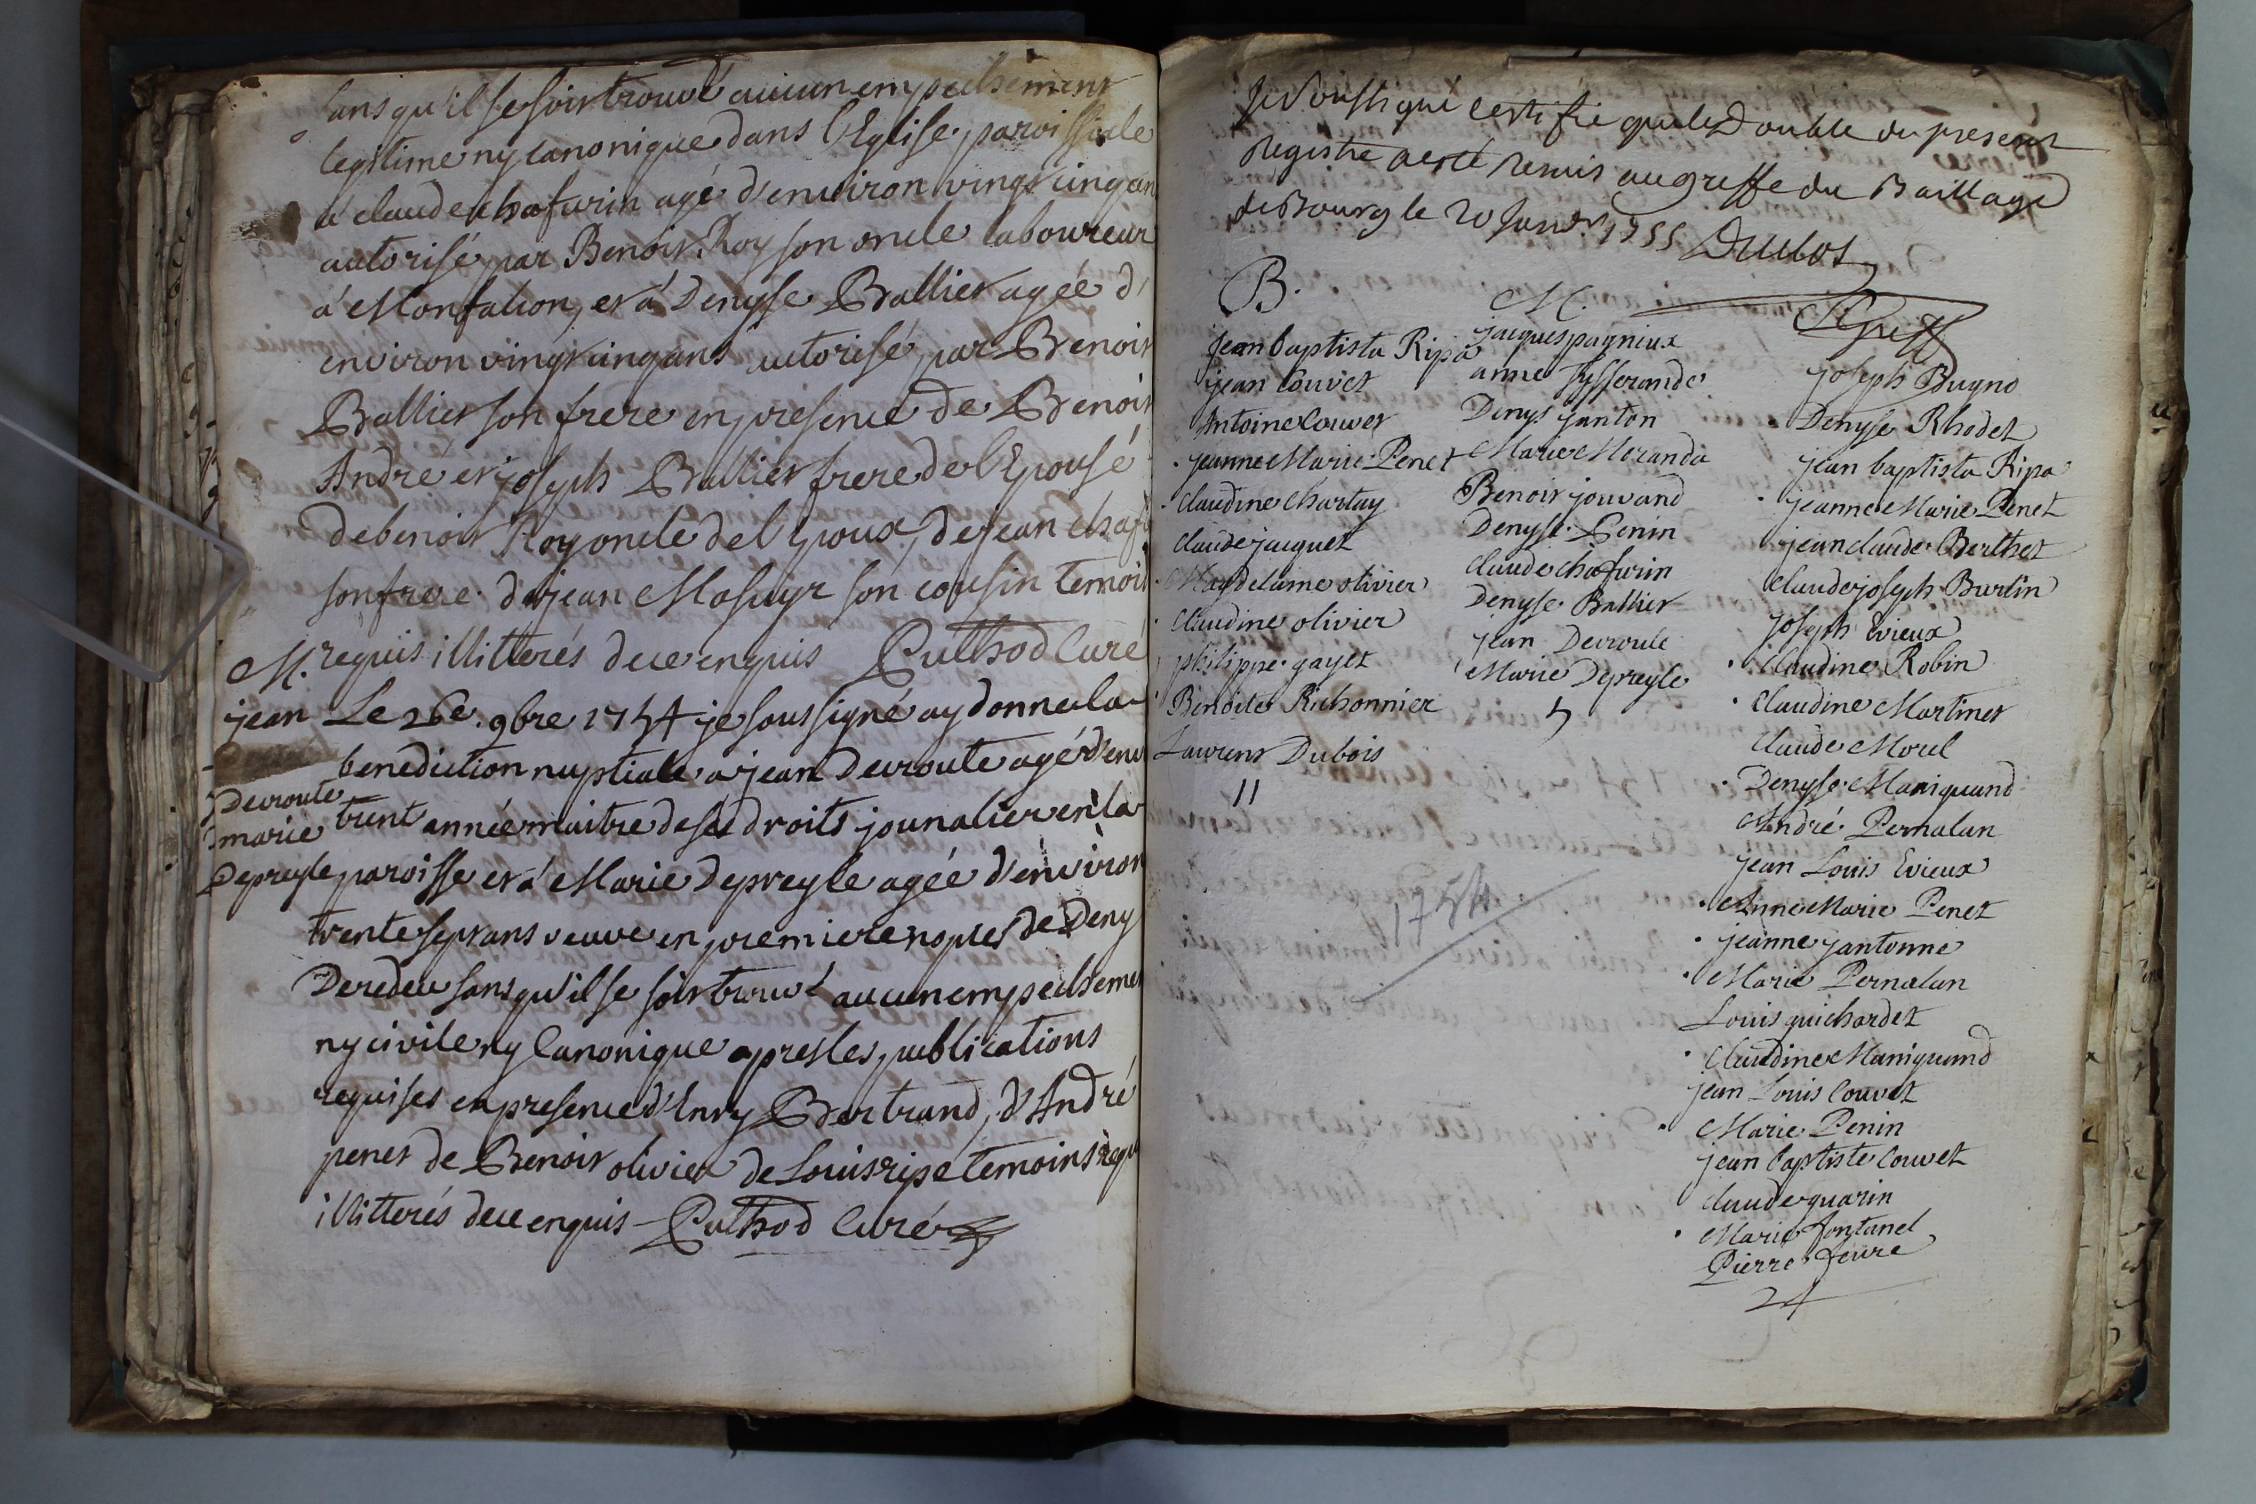 sans qu'il se soit trouvé aucun empechement
legitime ny canonique dans l'Eglise paroissiale
a claude chafurin agé d'environ vingt cinq an
autorisé par Benoit Roy son oncle laboureur
à Monfalion, et à Denyse Ballier agée d'
environ vingt cinq ans autorisé par Benoit
Ballier son frere en presence de Benoit
André et joseph Ballier frere de l'Epousé
de benoit Roy oncle de l'Epoux, de jean chaf
son frere de jean Masuyr son cousin temoin
requis illitterés de ce enquis Puthod Curé
M.
jean
Devroute
marie
Depreyle
Le 26e. 9bre 1754 je soussigné ay donné la
benediction nuptiale a jean Devroute agé d'env
trent année maitre de se droits jounalier en la
paroisse et à Marie depreyle agée d'environ
trente sept ans veuve en premiere noples de Deny
Deredeu sans qu'il se soit trouvé aucun empecheme
ny civile ny Canonique apres les publications
requises en presence d'Enry Bertrand, d'André
penet de Benoit olivier de Louis ripe temoins requ
illitterés de ce enquis Puthod Curé
Je soussigné certifie que le Double du present
Registre a esté remis au greffe du Baillage
de Bourg le 20 Janvr. 1755 Dubost
Greff
B.
jean baptista Ripa
jean Couvet
Antoine Couvet
jeanne Marie Penet
Claudine Chartay
Claude jacquet
Magdelaine olivier
Claudine olivier
philippe gayet
Benoite Richonnier
Laurent Dubois
11
M.
jacques pagnieux
anne Tysserande
Denys janton
Marie Moranda
Benoit jouvand
Denyse Penin
Claude chafurin
Denyse Ballier
jean Devroute
Marie Depreyle
5
joseph Bugno
Denyse Rhodet
jean baptista Ripa
jeanne Marie Penet
jean claude Berthet
Claude joseph Burtin
joseph Evieux
Claudine Robin
Claudine Martinet
Claude Morel
Denyse Maniquand
André Pernalan
jean Louis Evieux
Anne Marie Penet
jeanne jantonne
Marie Pernalan
Louis guichardet
Claudine Maniquand
jean Louis Couvet
Marie Penin
jean baptiste Couvet
Claude guarin
Marie fontanel
Pierre Feure
24
1754